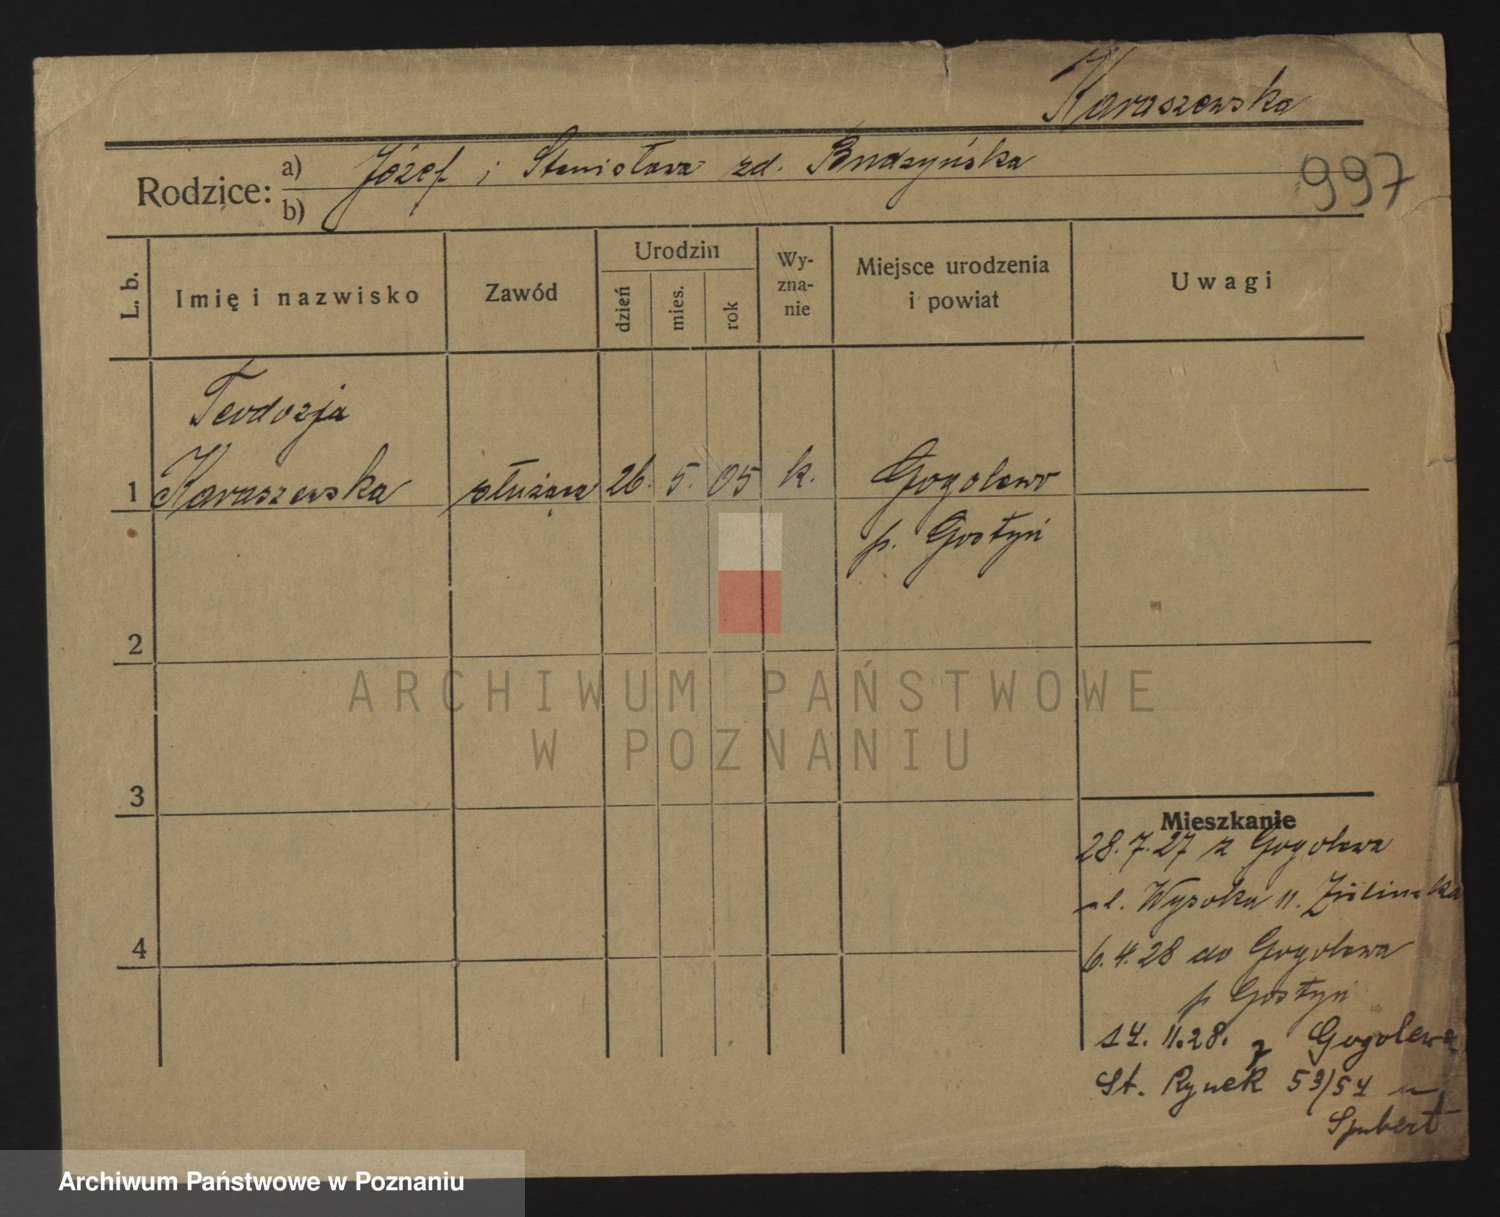 Karaszewska
Rodzice: a) Józef i Stanisława zd. Budzyńska
b)
997
L. b.
Imię i nazwisko
Zawód
Urodzin
dzień
mies.
rok
Wy-
zna-
nie
Miejsce urodzenia
i powiat
Uwagi
Teodozja
1 Karaszewska służąca 26. 5. 05 k. Gogolewo
p. Gostyń
2
ARCHIWUM PAŃSTWOWE
W POZNANIU
3
Mieszkanie
28.7.27 z Gogolewa
ul. Wysoka 11.
4
6.4.28 do Gogolewa
p Gostyń
14.11.28. z Gogolewa
St. Rynek 53/54 u
Archiwum Państwowe w Poznaniu